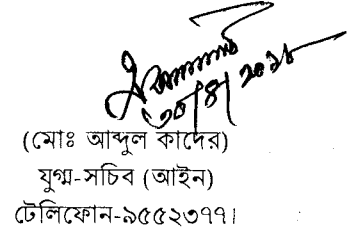 ৩০/৪/২০১৮
(মোঃ আব্দুল কাদের)
যুগ্ম-সচিব (আইন)
টেলিফোন-৯৫৫২৩৭৭।